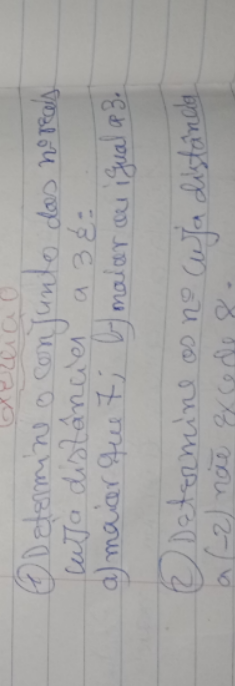 exercício
① Determine o conjunto dos nº reais
cuja distância a 3 é:
a) maior que 7; b) maior ou igual a 3.
② Determine os nº cuja distância
a (-2) não excede 8.